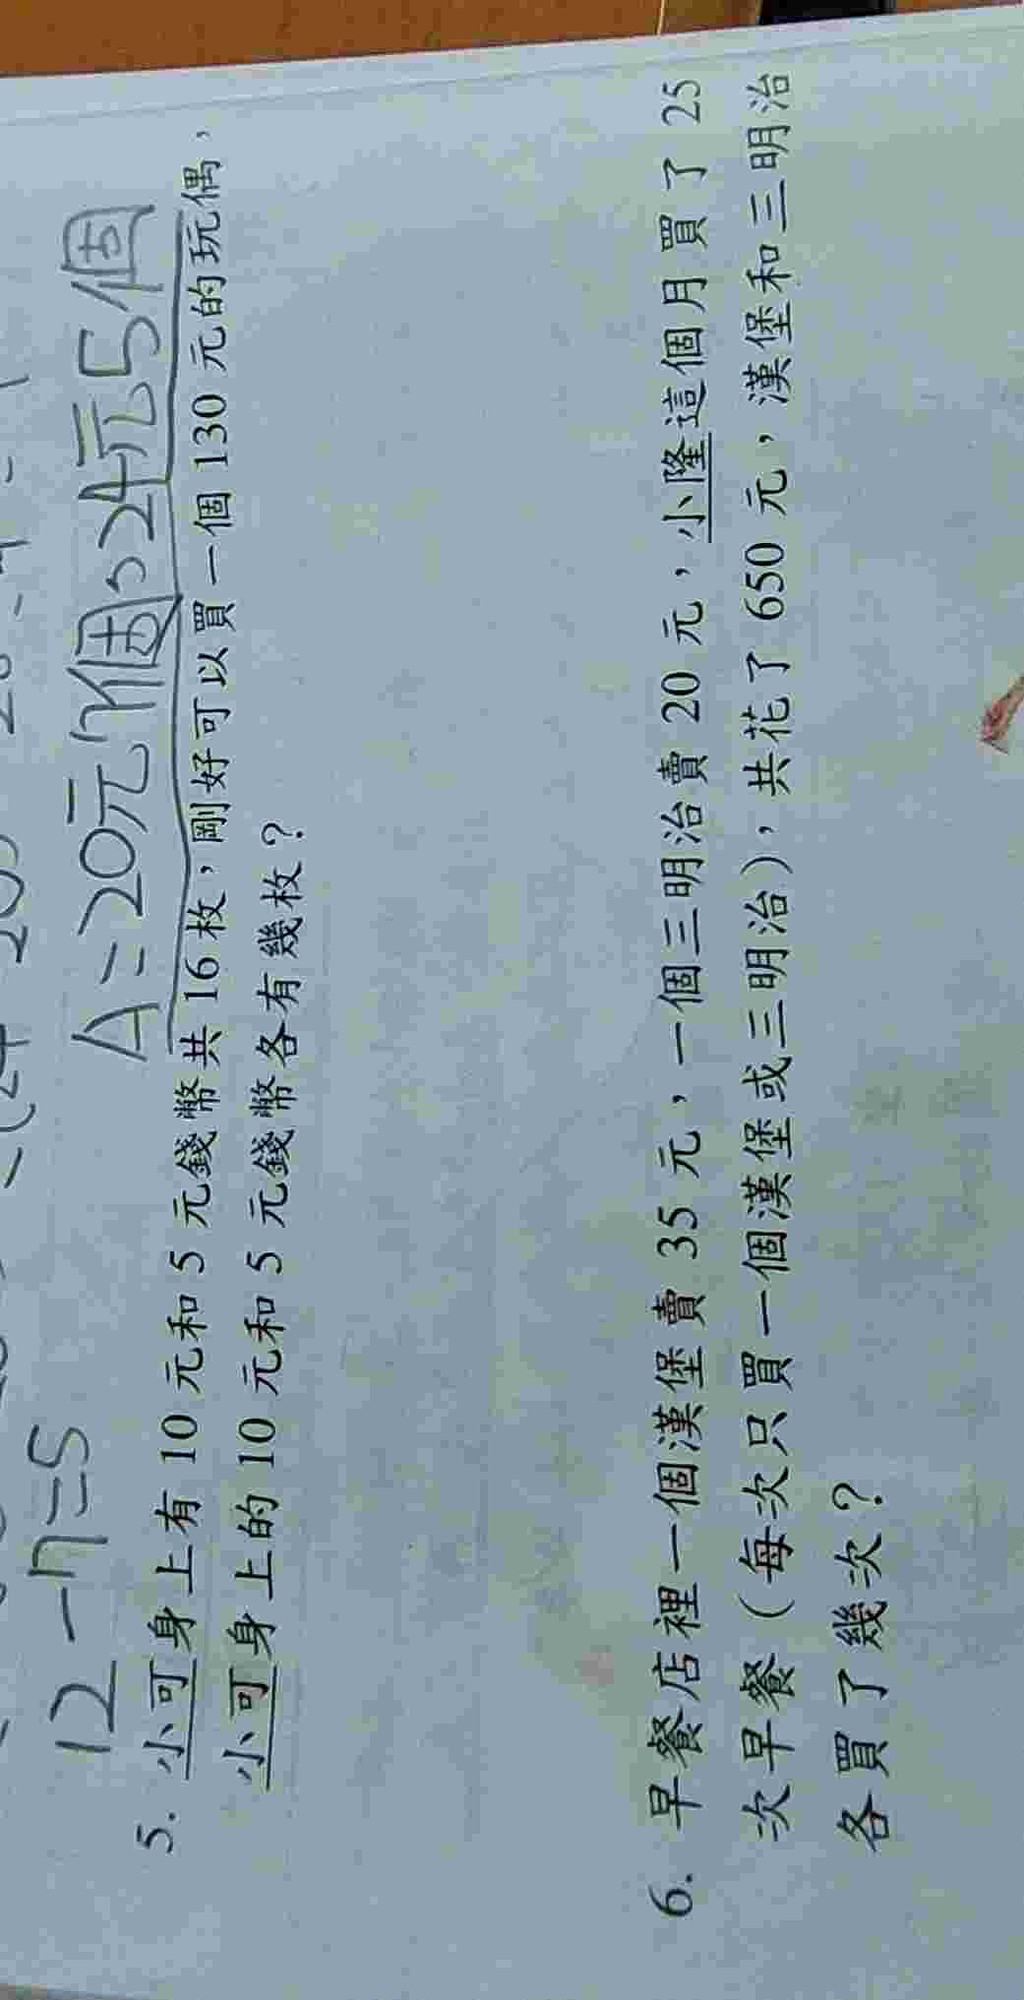 12-7=5
A=20元7個、24元5個
5. 小可身上有 10 元和 5 元錢幣共 16 枚，剛好可以買一個 130 元的玩偶，
小可身上的 10 元和 5 元錢幣各有幾枚？
6. 早餐店裡一個漢堡賣 35 元，一個三明治賣 20 元，小隆這個月買了 25
次早餐（每次只買一個漢堡或三明治），共花了 650 元，漢堡和三明治
各買了幾次？